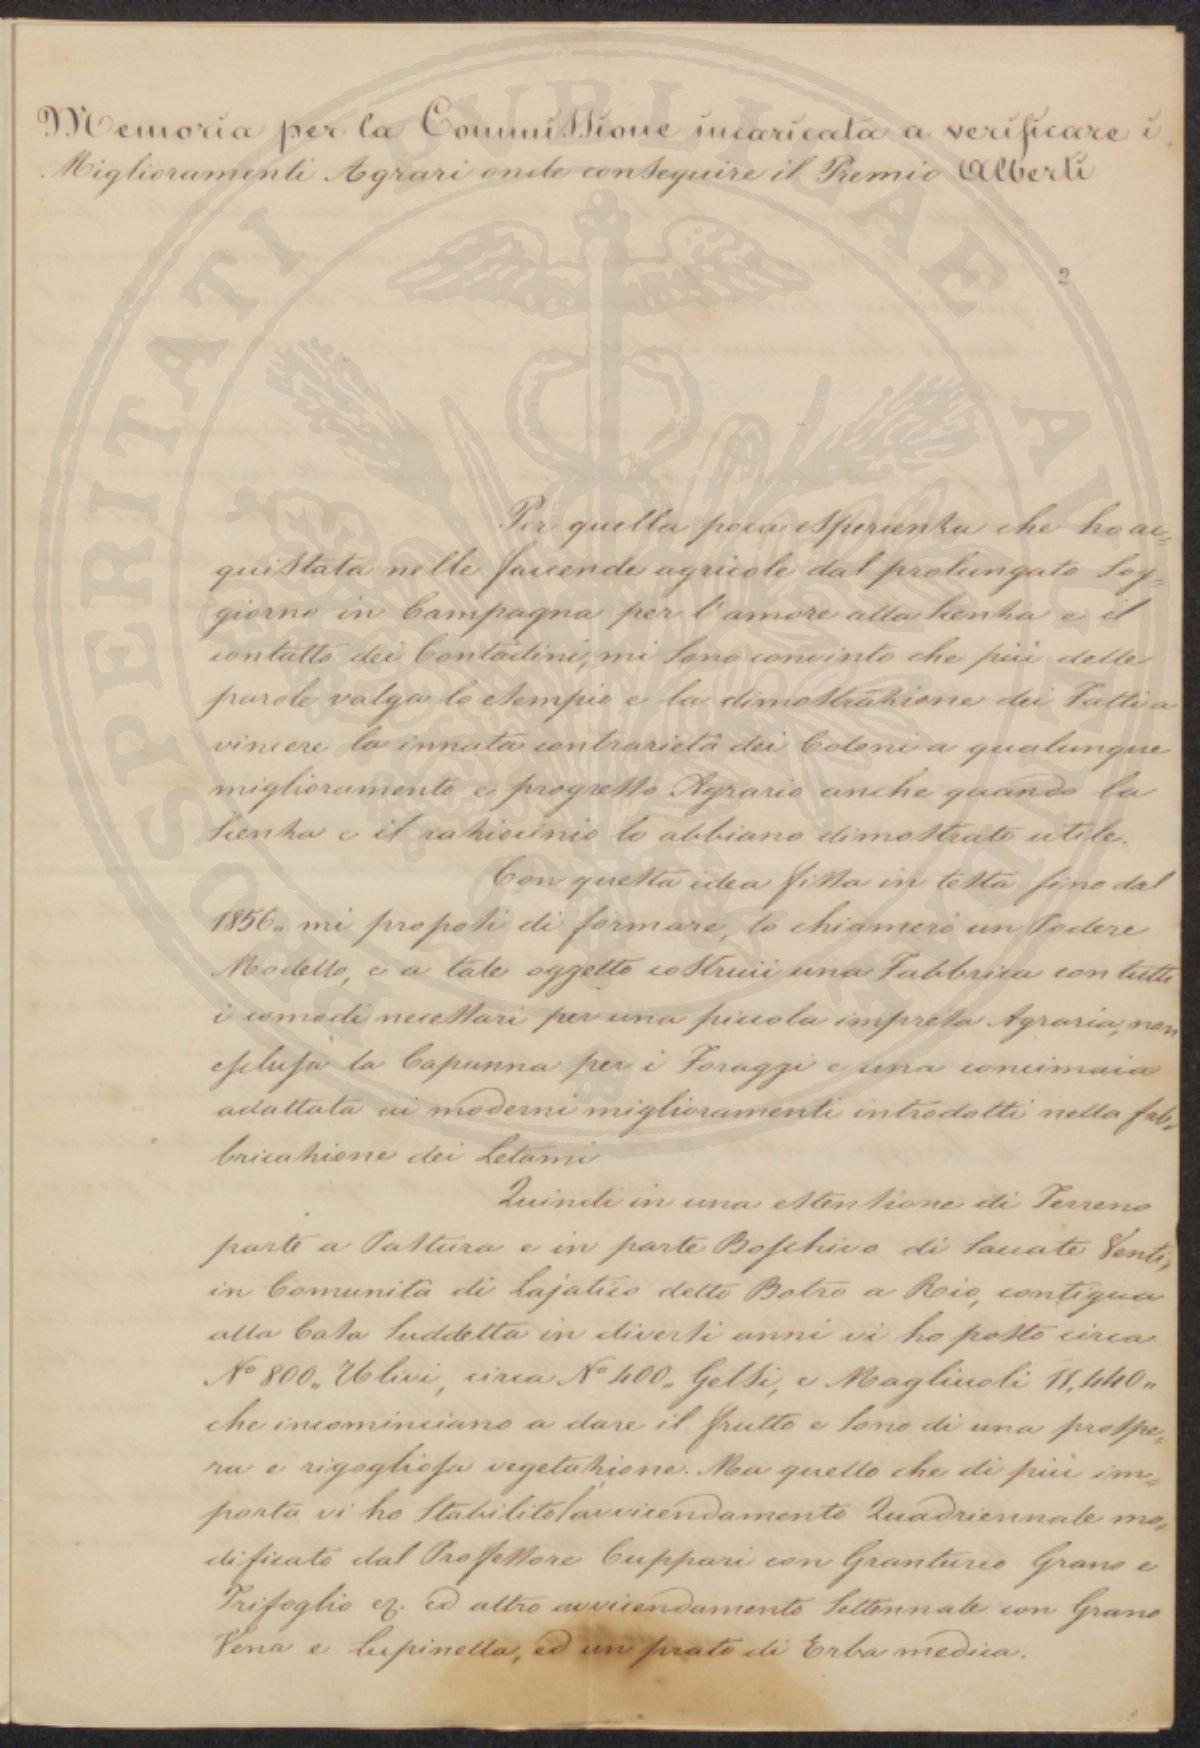 Memoria per la Commissione incaricata a verificare i
Miglioramenti Agrari onde conseguire il Premio Alberti
2
Per quella poca esperienza che ho ac=
quistata nelle faccende agricole dal prolungato Sog=
giorno in Campagna per l'amore alla Scienza e il
contatto dei Contadini, mi sono convinto che più delle
parole valga lo esempio e la dimostrazione dei Fatti a
vincere la innata contrarietà dei Coloni a qualunque
miglioramento e progresso Agrario anche quando la
Scienza e il raziocinio lo abbiano dimostrato utile.
Con questa idea fissa in testa fino dal
1856. mi proposi di formare, lo chiamerò un Podere
Modello, e a tale oggetto costruii una Fabbrica con tutti
i comodi necessari per una piccola impresa Agraria, non
esclusa la Capanna per i Foraggi e una concimaia
adattata ai moderni miglioramenti introdotti nella fab=
bricazione dei Letami
Quindi in una estensione di Terreno
parte a Pastura e in parte Boschivo di Saccate Venti,
in Comunità di Lajatico detto Botro a Rio, contigua
alla Casa Suddetta in diversi anni vi ho posto circa
N° 800,, Ulivi, circa N° 400,, Gelsi, e Magliuoli 11,440,,
che incominciano a dare il frutto e sono di una prospe=
ra e rigogliosa vegetazione. Ma quello che di più im=
porta vi ho stabilito l'avvicendamento Quadriennale mo=
dificato dal Professore Cuppari con Granturco Grano e
Trifoglio ed altro avvicendamento Settennale con Grano
Vena e Lupinella, ed un prato di Erba medica.
SPERITATI PUBLICAE AU